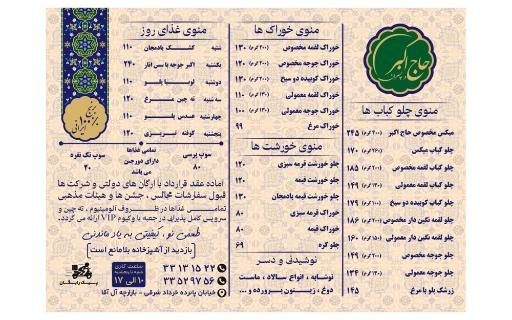 حاج اکبر
و پسران
منوی چلو کباب ها
میکس مخصوص حاج اکبر ۲۴۵
چلو کباب میکس ۱۷۰
چلو کباب لقمه مخصوص ۱۸۵
چلو کباب لقمه معمولی ۱۴۹
چلو کباب کوبیده دو سیخ ۱۷۹
چلو لقمه نگین دار مخصوص ۱۸۶
چلو لقمه نگین دار معمولی ۱۶۰
چلو جوجه مخصوص ۱۴۹
چلو جوجه معمولی ۱۳۴
زرشک پلو با مرغ ۱۴۵
منوی خوراک ها
خوراک لقمه مخصوص (۲۰۰ گرم) ۱۳۰
خوراک جوجه مخصوص (۲۰۰ گرم) ۱۲۰
خوراک کوبیده دو سیخ (۲۰۰ گرم) ۱۳۰
خوراک لقمه معمولی ۱۱۰
خوراک جوجه معمولی ۱۰۰
خوراک مرغ ۹۹
منوی خورشت ها
چلو خورشت قرمه سبزی ۱۲۰
چلو خورشت قیمه ۱۲۰
چلو خورشت قیمه بادمجان ۱۳۰
خوراک قرمه سبزی ۸۰
خوراک قیمه ۸۰
چلو کره ۶۹
نوشیدنی و دسر
نوشابه ، انواع سالاد ، ماست
دوغ ، زیتون پرورده و ...
منوی غذای روز
شنبه کشک بادمجان ۱۱۰
یکشنبه اکبر جوجه با سس انار ۲۴۰
دوشنبه لوبیا پلو ۱۱۰
سه شنبه ته چین مرغ ۱۲۰
چهارشنبه عدس پلو ۱۱۰
پنجشنبه کوفته تبریزی ۱۲۰
برنج ایرانی
سوپ تک نفره ۲۰
تمامی غذاها
دارای دورچین
می باشد
سوپ پرسی ۸۰
آماده عقد قرارداد با ارگان های دولتی و شرکت ها
قبول سفارشات مجالس ، جشن ها و هیئات مذهبی
تمامی غذاها در ظروف آلومینیوم ، ته چین و
سرویس کامل پذیرایی در جعبه با وکیوم VIP ارائه می گردد.
طعمی نو ، کیفیتی به یاد ماندنی
بازدید از آشپزخانه بلامانع است
پیک رایگان
ساعت کاری
۱۰ الی ۱۷
۳۳ ۱۳ ۱۵ ۲۲
۳۳ ۵۲ ۹۷ ۵۶
خیابان پانزده خرداد شرقی - بازارچه آل آقا